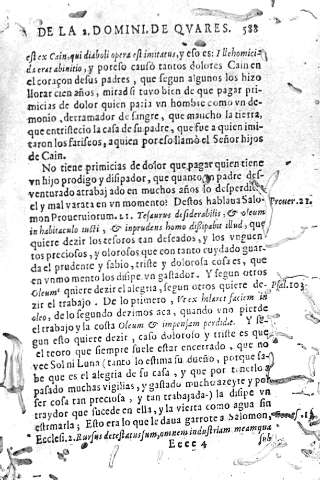 DE LA 2. DOMINI. DE QVARES. 588
est ex Cain, qui diaboli opera est imitatus, y eso es: Ille homicida
da erat ab initio, y por eso causò tantos dolores Cain en
el coraçon de sus padres, que segun algunos los hizo
llorar cien años, mirad si tuvo bien de que pagar primicias
micias de dolor quien paria vn hombre como vn demonio
monio, derramador de sangre, que mancho la tierra,
que entristecio la casa de su padre, que fue a quien imitaron
los fariseos, a quien por eso llamò el Señor hijos
de Cain.
No tiene primicias de dolor que pagar quien tiene
vn hijo prodigo y disipador, que quanto vn padre desventurado
atrabajado en muchos años lo desperdicie
y mal varata en vn momento? Destos hablaua Salomon
Prouer. 21.
mon Proueruiorum. 21. Tesaurus desiderabilis, & oleum
in habitaculo iusti, & inprudens homo disipabit illud, que
quiere dezir los tesoros tan deseados, y los vnguen
tos preciosos, y olorosos que con tanto cuydado guarda
da el prudente y sabio, triste y dolorosa cosa es, que
en vn momento los disipe vn gastador. Y segun otros
Oleum quiere dezir el alegria, segun otros quiere de-
Psal. 103.
zir el trabajo. De lo primero, Vt ex hilaret faciem in
oleo, de lo segundo dezimos aca, quando vno pierde
el trabajo y la costa Oleum & impensam perdidit. Y segun
gun esto quiere dezir, caso doloroso y triste es que
el tesoro que siempre suele estar encerrado, que no
vee Sol ni Luna (tanto lo estima su dueño, porque sabe
be que es el alegria de su casa, y que por tenerlo a
pasado muchas vigilias, y gastado mucho azeyte y por
ser cosa tan preciosa, y tan trabajada) la disipe vn
traydor que sucede en ella, y la vierta como agua sin
estimarla; Esto era lo que le daua garrote a Salomon,
Ecclesi. 2. Rursus detestatus sum, omnem industriam meam qua
Eccc 4 sub